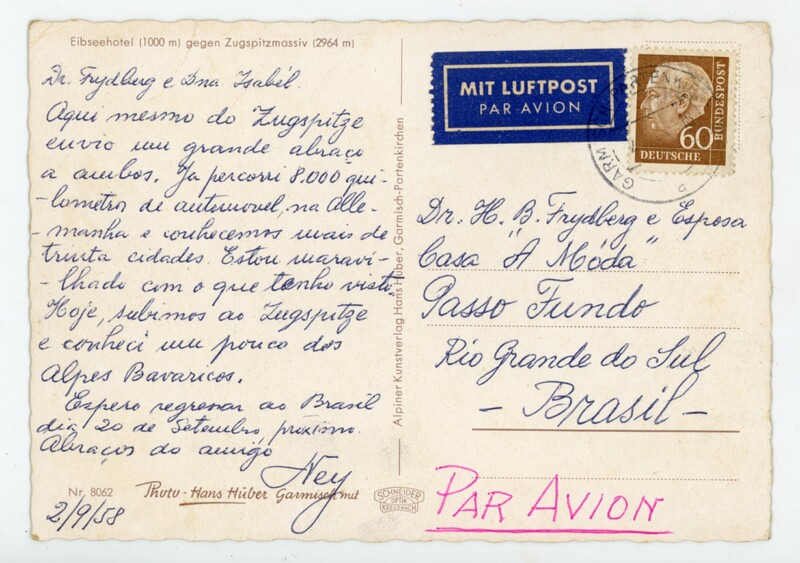 Eibseehotel (1000 m) gegen Zugspitzmassiv (2964 m)
Dr. Frydberg e Dna Isabél.
Aqui mesmo do Zugspitze
envio um grande abraço
a ambos. Ja percorri 8.000 qui-
lometros de automovel, na Alle-
manha e conhecemos mais de
trinta cidades. Estou maravi-
-lhado com o que tenho visto.
Hoje, subimos ao Zugspitze
e conheci um pouco dos
Alpes Bavaricos.
Espero regressar ao Brasil
dia 20 de Setembro, proximo.
Abraços do amigo
Ney
Nr. 8062
Photo - Hans Huber Garmisch mit
SCHNEIDER
OPTIK
KREUZNACH
2/9/58
Alpiner Kunstverlag Hans Huber, Garmisch-Partenkirchen
MIT LUFTPOST
PAR AVION
60
DEUTSCHE
BUNDESPOST
GARM
TENK
Dr. H. B. Frydberg e Esposa
Casa "A Móda"
Passo Fundo
Rio Grande do Sul
- Brasil -
PAR AVION